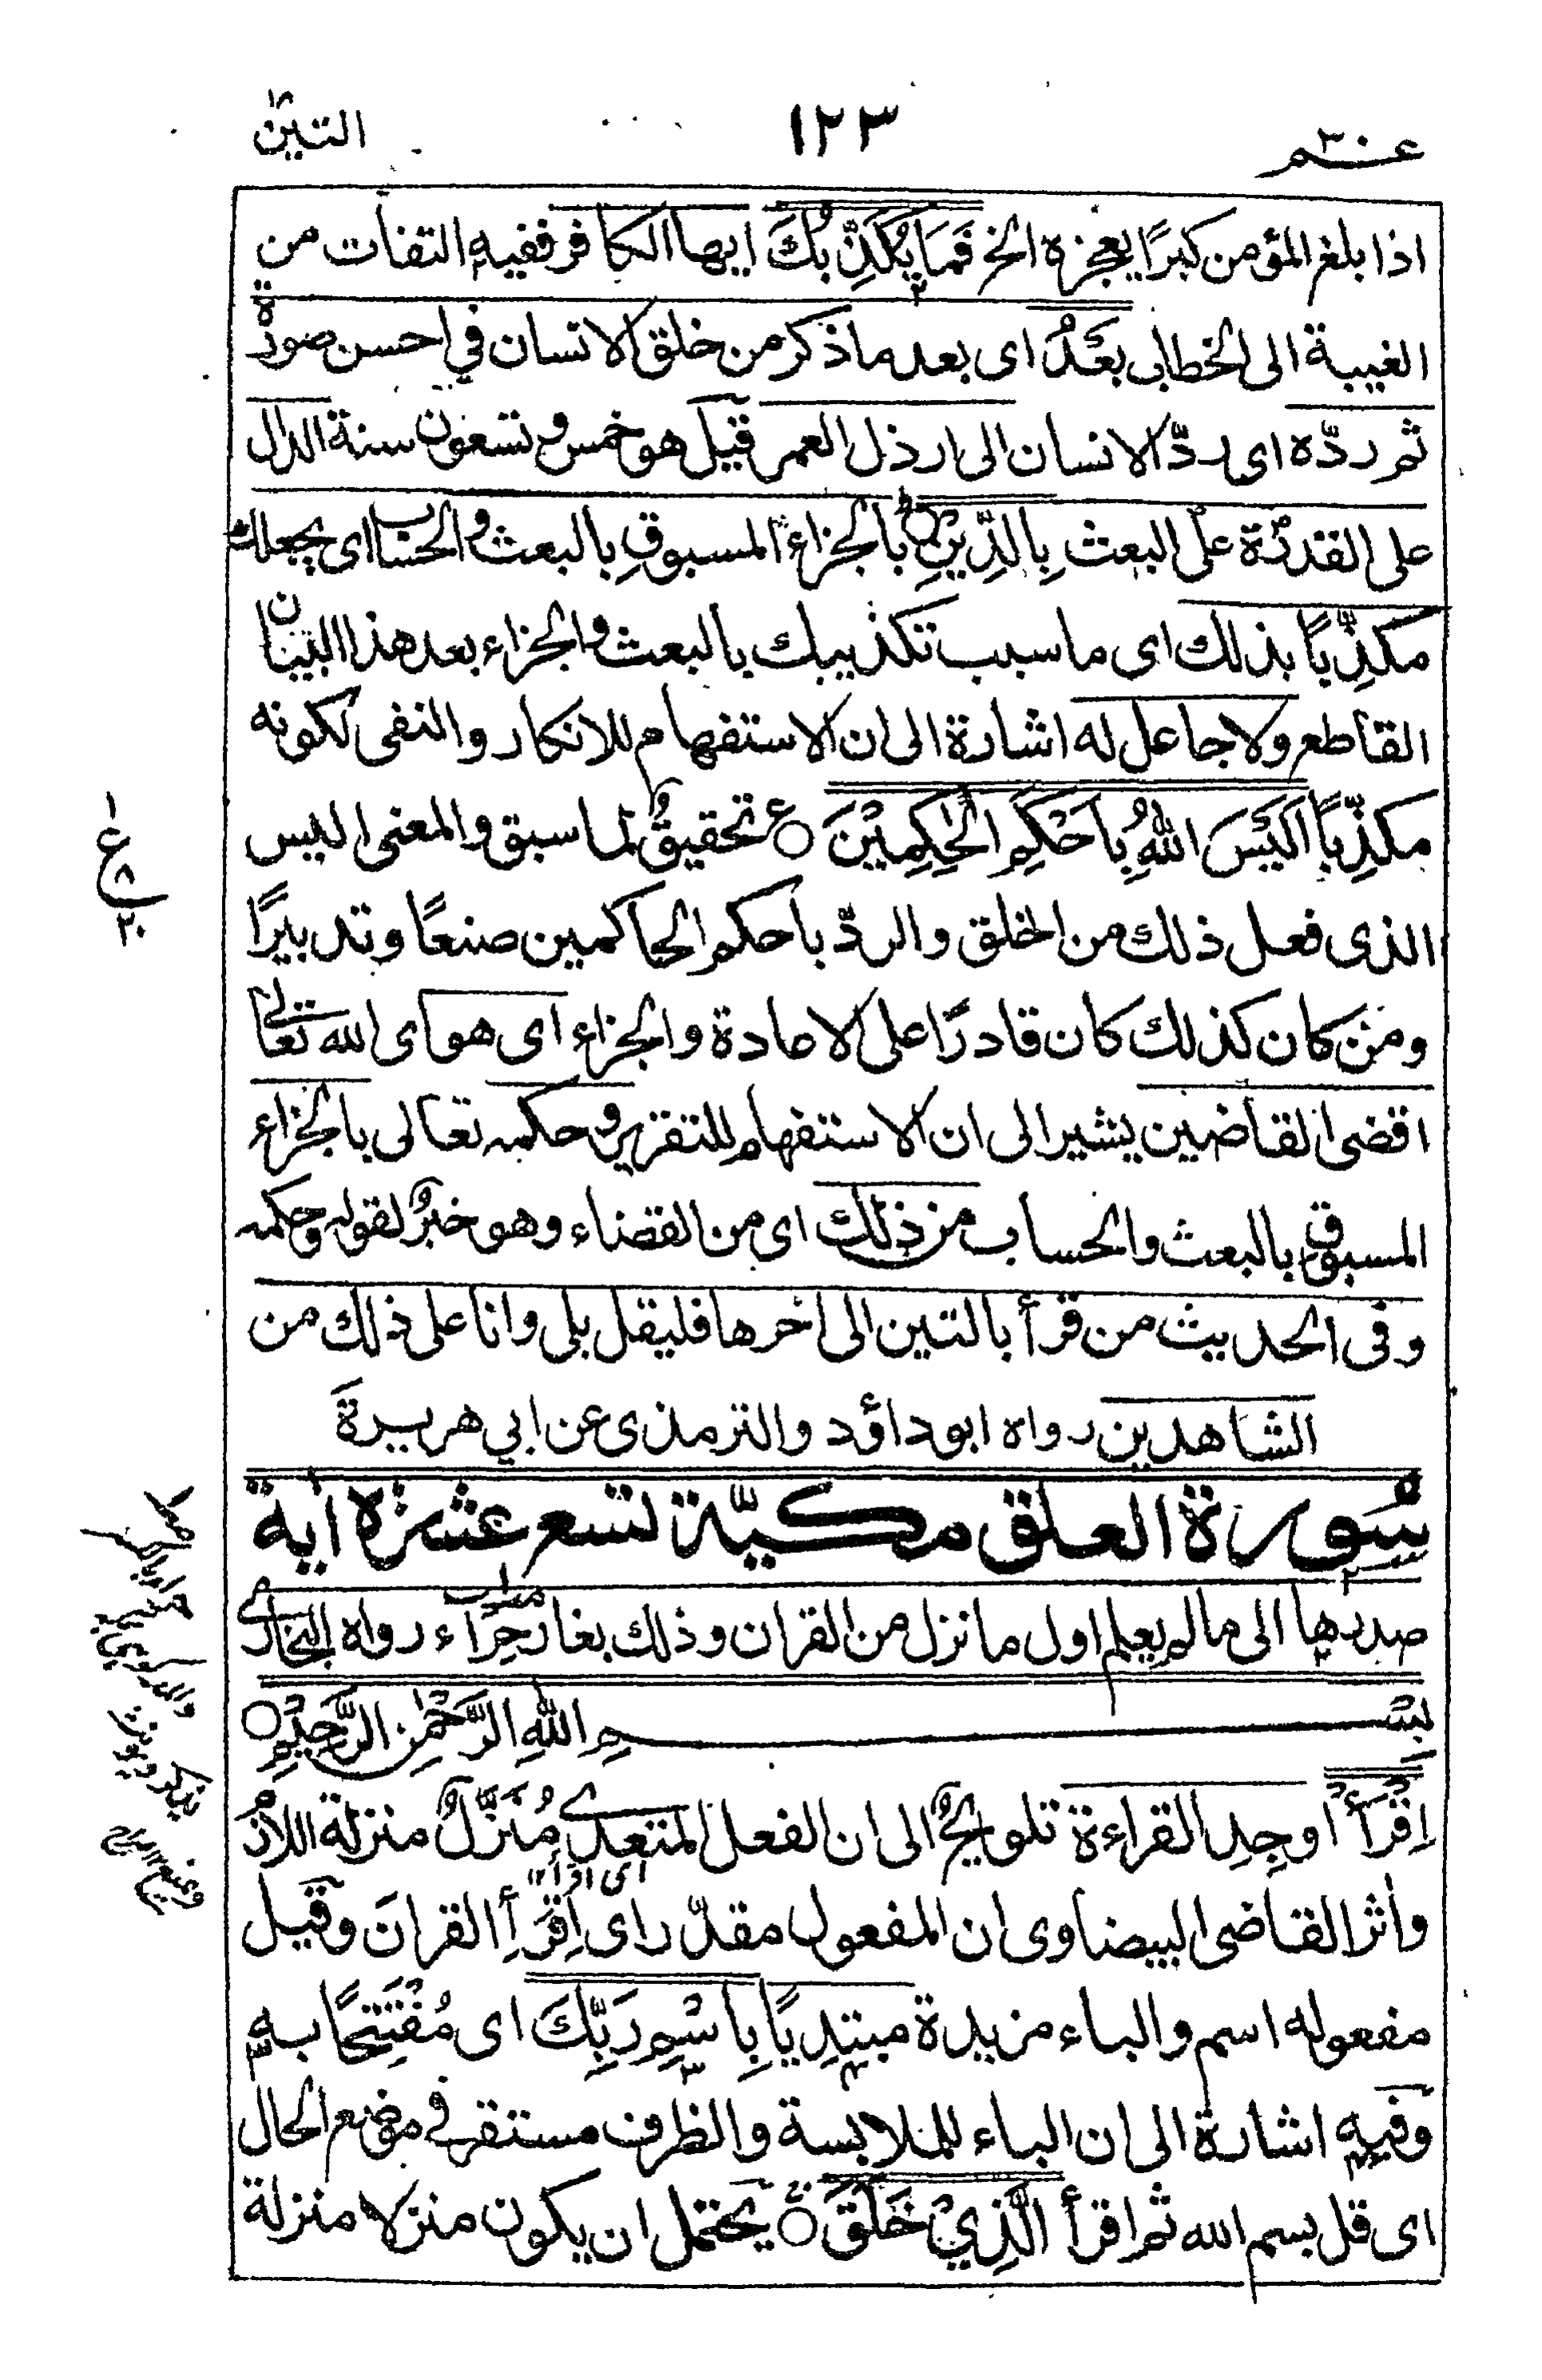 عـــم ٣٠
١٢٣
التين
اذا بلغ المؤمن كبرًا يعجزه الخ فَمَا يُكَذِّبُكَ ايها الكافر ففيه التفات من
الغيبة الى الخطاب بَعْدُ اى بعد ما ذكر من خلق الانسان في احسن صورة
ثم ردّه اى ردّ الانسان الى ارذل العمر قيل هو خمس وتسعون سنة الدال
على القدرة على البعث بِالدِّيْنِ بالجزاء المسبوقِ بالبعث والحساب اى يجعلك
مكذِّبًا بذلك اى ما سبب تكذيبك بالبعث والجزاء بعد هذا البيان
القاطع ولا جاعل له اشارة الى ان الاستفهام للانكار والنفى لكونه
مكذِّبًا اَلَيْسَ اللّٰهُ بِاَحْكَمِ الْحٰكِمِيْنَ ○ تحقيقٌ لما سبق والمعنى اليس
الذى فعل ذلك من الخلق والردّ باحكم الحاكمين صنعًا وتدبيرًا
ومَنْ كان كذلك كان قادرًا على الاعادة والجزاء اى هو اى الله تعالى
اقضى القاضين يشير الى ان الاستفهام للتقرير وحكمه تعالى بالجزاء
المسبوق بالبعث والحساب من ذلك اى من القضاء وهو خبرٌ لقوله وحكمه
وفى الحديث من قرأ بالتين الى اٰخرها فليقل بلى وانا على ذلك من
الشاهدين رواه ابوداؤد والترمذى عن ابي هريرةَ
سُورة العلق مكيّة تسع عشرة اٰية
صدرها الى ما لم يعلم اول ما نزل من القراٰن وذلك بغار حِرَاء رواه البخارى
بِسْــــــمِ اللّٰهِ الرَّحْمٰنِ الرَّحِيْمِ ○
اِقْرَأْ اوجِدِ القراءة تلويحٌ الى ان الفعل المتعدى مُنَزَّلٌ منزلة اللازم
واٰثر القاضى البيضاوى ان المفعول مقدّر اى اِقْرَأِ القراٰنَ وقيل
مفعوله اسم والباء مزيدة مبتدِيًا بِاسْمِ رَبِّكَ اى مُفْتَتِحًا به
وفيه اشارة الى ان الباء للملابسة والظرف مستقر فى موضع الحال
اى قل بسم الله ثم اقرأ الَّذِيْ خَلَقَ ○ يحتمل ان يكون منزلا منزلة